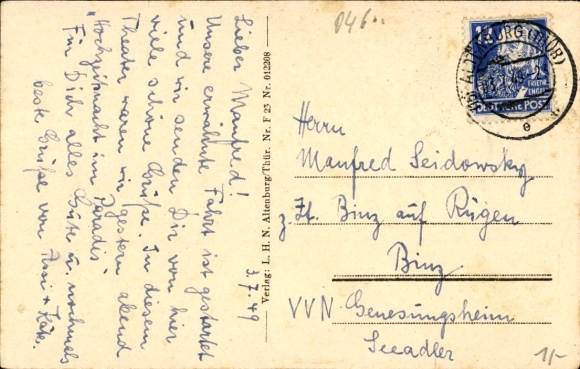 046..
3.7.49
Lieber Manfred!
Unsere erwähnte Fahrt ist gestartet
und wir senden Dir von hier
viele schöne Grüße. In diesem
Theater waren wir gestern abend
"Hochzeitsnacht im Paradies"
Für Dich alles Gute u. nochmals
beste Grüße von Käte.
Verlag: L. H. N. Altenburg/Thür. Nr. F 25 Nr. 012208
ALTENBURG (THÜR)
e
12
FRIEDR.
ENGELS
DEUTSCHE POST
Herrn
Manfred Seidowsky
z. Zt. Binz auf Rügen
Binz
VVN Genesungsheim
Seeadler
1/-